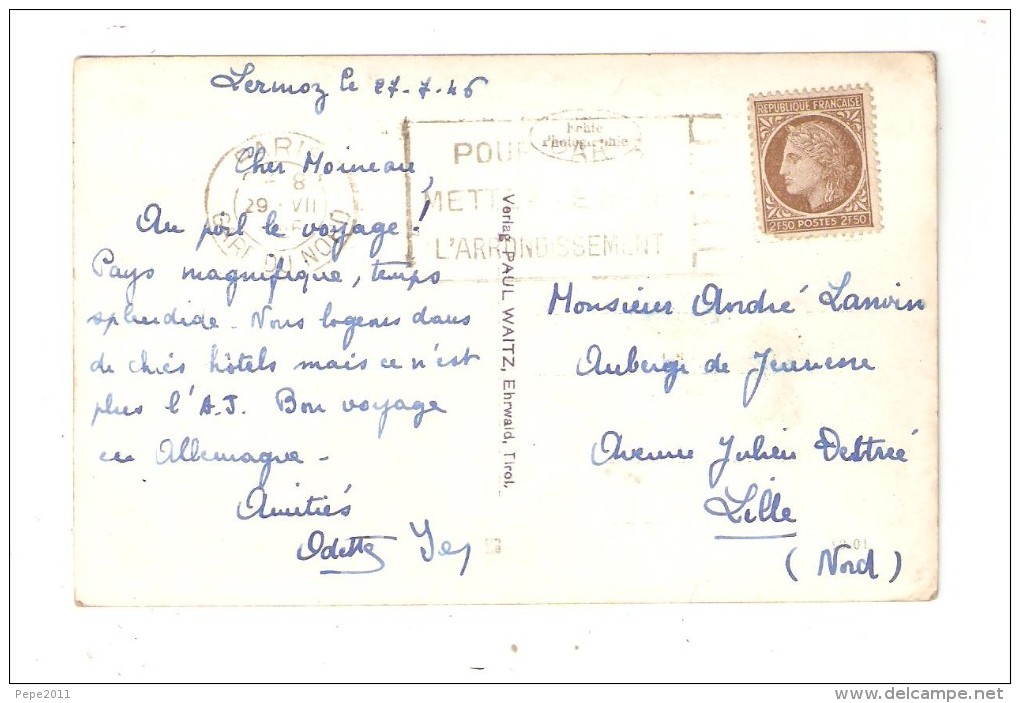 Lermoz le 27-7-46
Cher Moineau,
Au poil le voyage!
Pays magnifique, temps
splendide. Nous logeons dans
de chics hôtels mais ce n'est
plus l'A.J. Bon voyage
en Allemagne -
Amitiés
Odette
PARIS
8
29 VII
GARE DU NORD
POUR
METTRE
L'ARRONDISSEMENT
Echte
Photographie
Verlag PAUL WAITZ, Ehrwald, Tirol.
REPUBLIQUE FRANÇAISE
2F50 POSTES 2F50
Monsieur André Lanvin
Auberge de Jeunesse
Avenue Julien Destrée
Lille
(Nord)
Pepe2011
www.delcampe.net